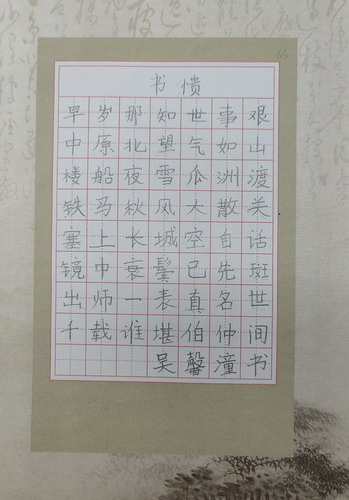 书愤
早岁那知世事艰
中原北望气如山
楼船夜雪瓜洲渡
铁马秋风大散关
塞上长城空自话
镜中衰鬓已先斑
出师一表真名世
千载谁堪伯仲间
吴馨潼书